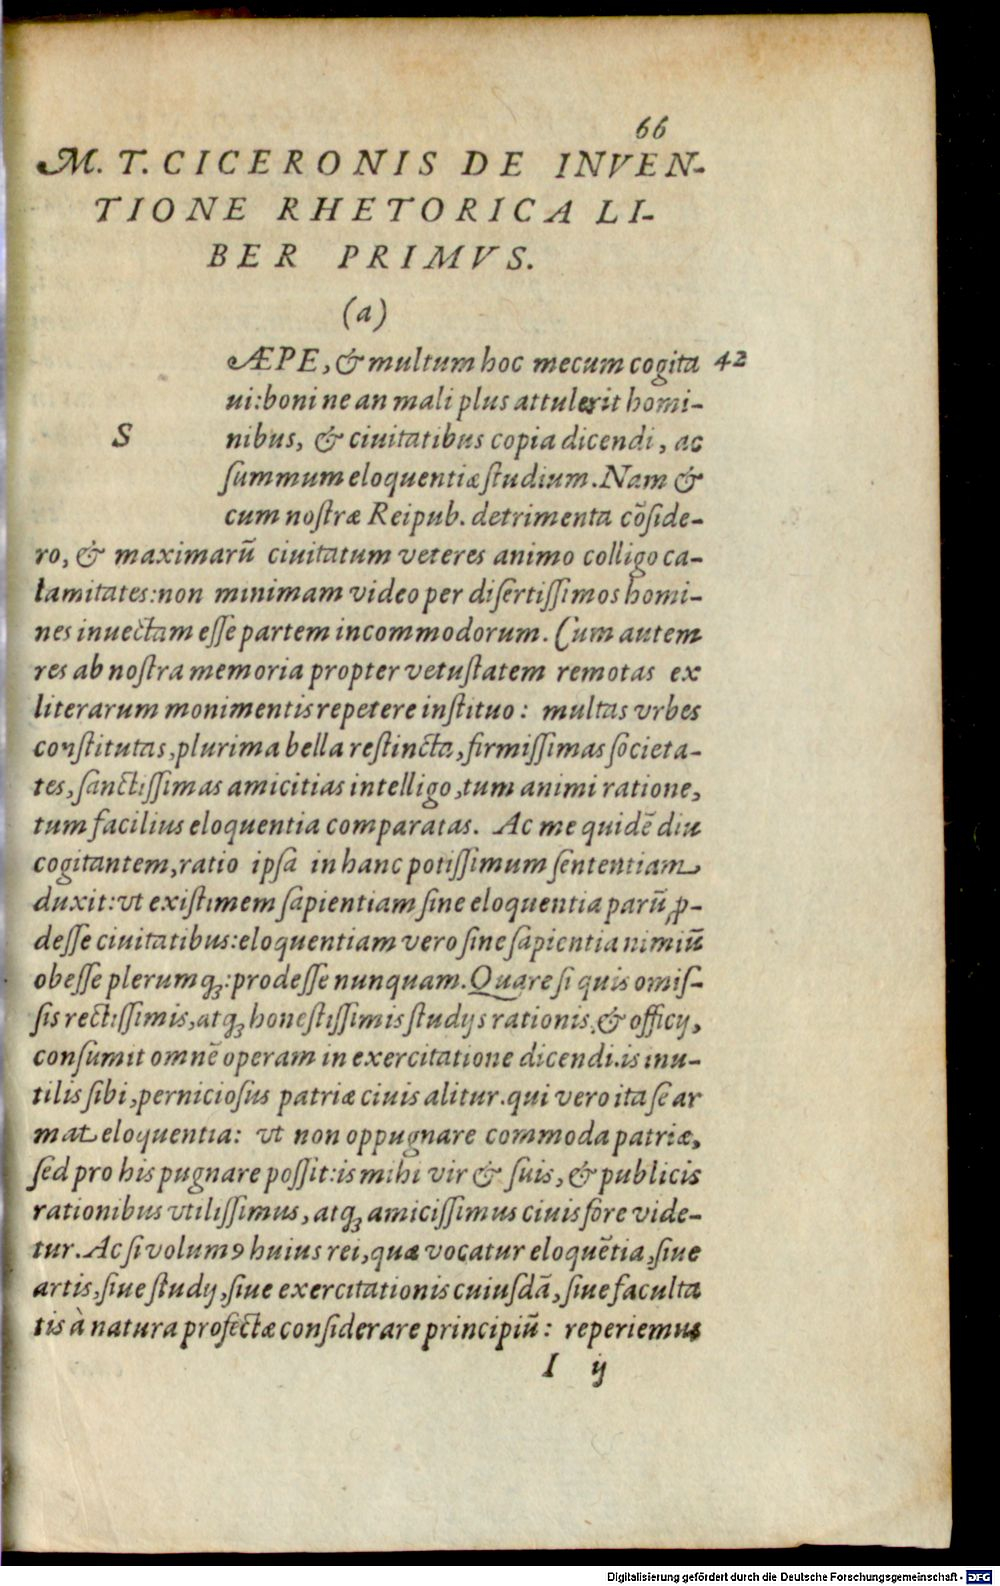 66
M. T. CICERONIS DE INVEN-
TIONE RHETORICA LI-
BER PRIMVS.
(a)
ÆPE, & multum hoc mecum cogita 42
ui: boni ne an mali plus attulerit homi-
S nibus, & ciuitatibus copia dicendi, ac
ſummum eloquentiæ ſtudium. Nam &
cum noſtræ Reipub. detrimenta cõſide-
ro, & maximarũ ciuitatum veteres animo colligo ca-
lamitates: non minimam video per diſertiſſimos homi-
nes inuectam eſſe partem incommodorum. Cum autem
res ab noſtra memoria propter vetuſtatem remotas ex
literarum monimentis repetere inſtituo: multas vrbes
conſtitutas, plurima bella reſtincta, firmiſſimas ſocieta-
tes, ſanctiſſimas amicitias intelligo, tum animi ratione,
tum facilius eloquentia comparatas. Ac me quidẽ diu
cogitantem, ratio ipſa in hanc potiſſimum ſententiam
duxit: vt exiſtimem ſapientiam ſine eloquentia parũ ꝓ-
deſſe ciuitatibus: eloquentiam vero ſine ſapientia nimiũ
obeſſe plerumqꝫ: prodeſſe nunquam. Quare ſi quis omiſ-
ſis rectiſſimis, atqꝫ honeſtiſſimis ſtudijs rationis, & officij,
conſumit omnẽ operam in exercitatione dicendi. is inu-
tilis ſibi, pernicioſus patriæ ciuis alitur. qui vero ita ſe ar
mat eloquentia: vt non oppugnare commoda patriæ,
ſed pro his pugnare poſſit: is mihi vir & ſuis, & publicis
rationibus vtiliſſimus, atqꝫ amiciſſimus ciuis fore vide-
tur. Ac ſi volumꝰ huius rei, quæ vocatur eloquẽtia, ſiue
artis, ſiue ſtudij, ſiue exercitationis cuiuſdã, ſiue faculta
tis à natura profectæ conſiderare principiũ: reperiemus
I ij
Digitalisierung gefördert durch die Deutsche Forschungsgemeinschaft - DFG